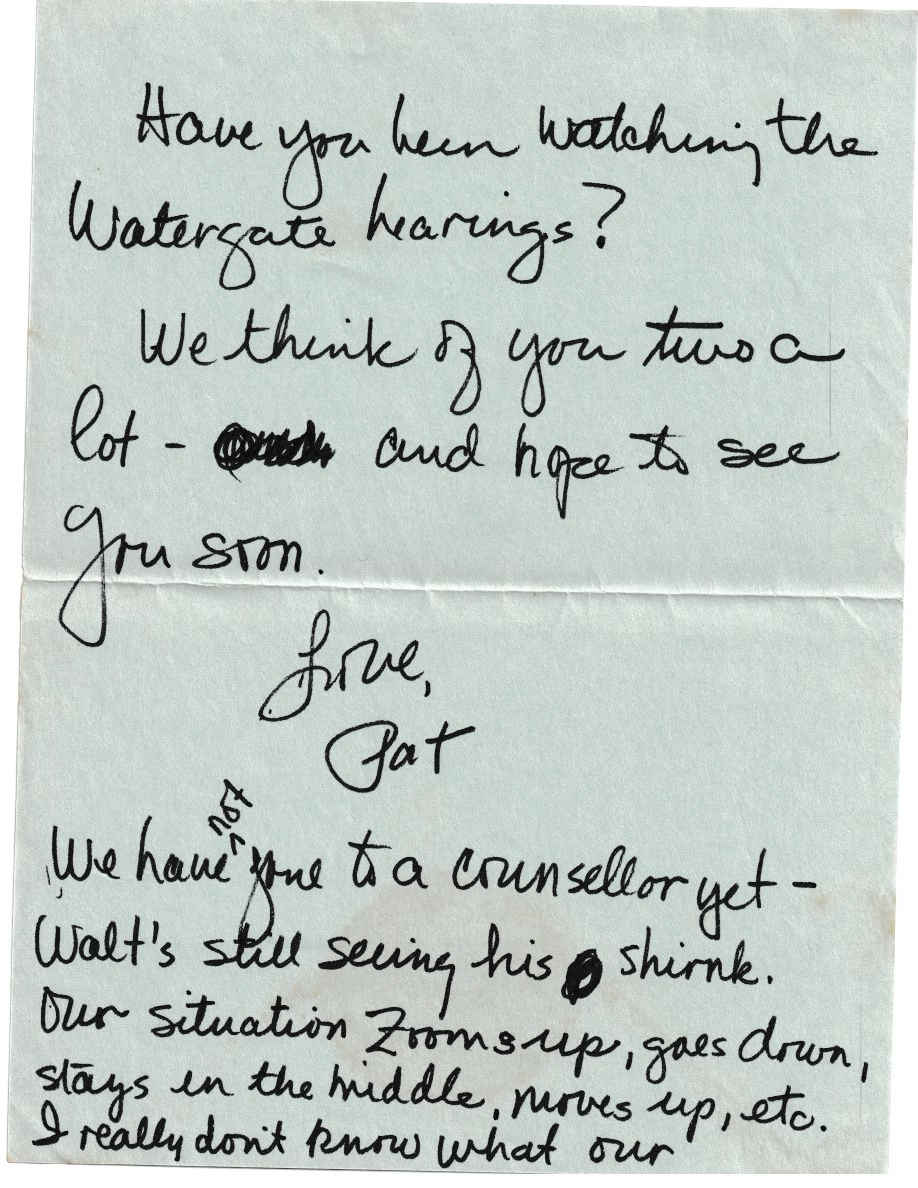 Have you been watching the
Watergate hearings?
We think of you two a
lot - and hope to see
you soon.
Love,
Pat
not
We have gone to a counsellor yet -
Walt's still seeing his shirnk.
Our situation zooms up, goes down,
stays in the middle, moves up, etc.
I really don't know what our